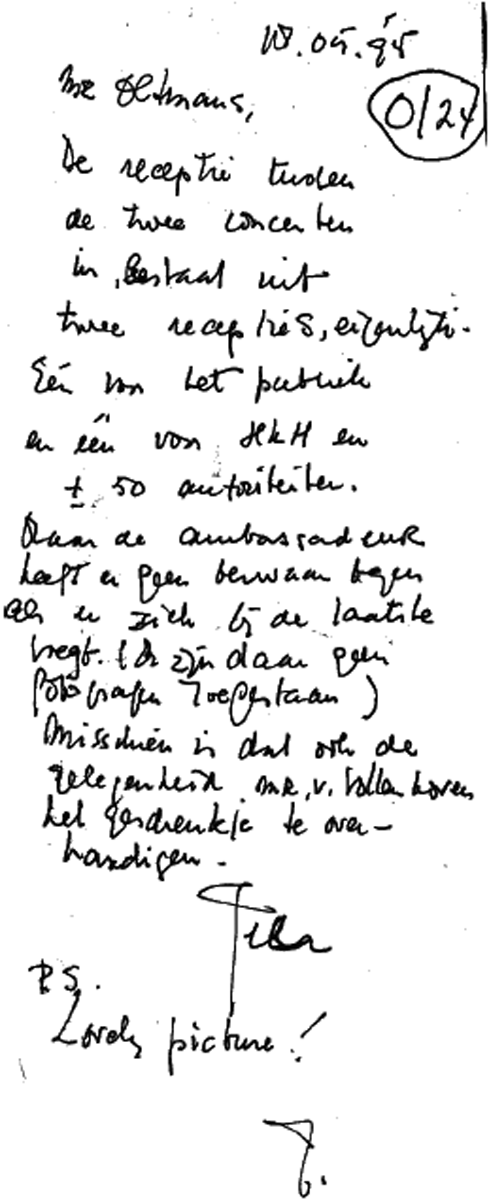 18.05.95
0/24
Mr Oltmans,
De receptie tussen
de twee concerten
in, bestaat uit
twee recepties, eigenlijk.
Eén von het publiek
en één von HKH en
± 50 autoriteiten.
Maar de ambassadeur
heeft er geen bezwaar tegen
als u zich bij de laatste
voegt. (Er zijn daar geen
fotografen toegestaan)
Misschien is dat ook de
gelegenheid mr. v. Vollenhoven
het geschenkje te over-
handigen.
P.S.
Lovely picture!